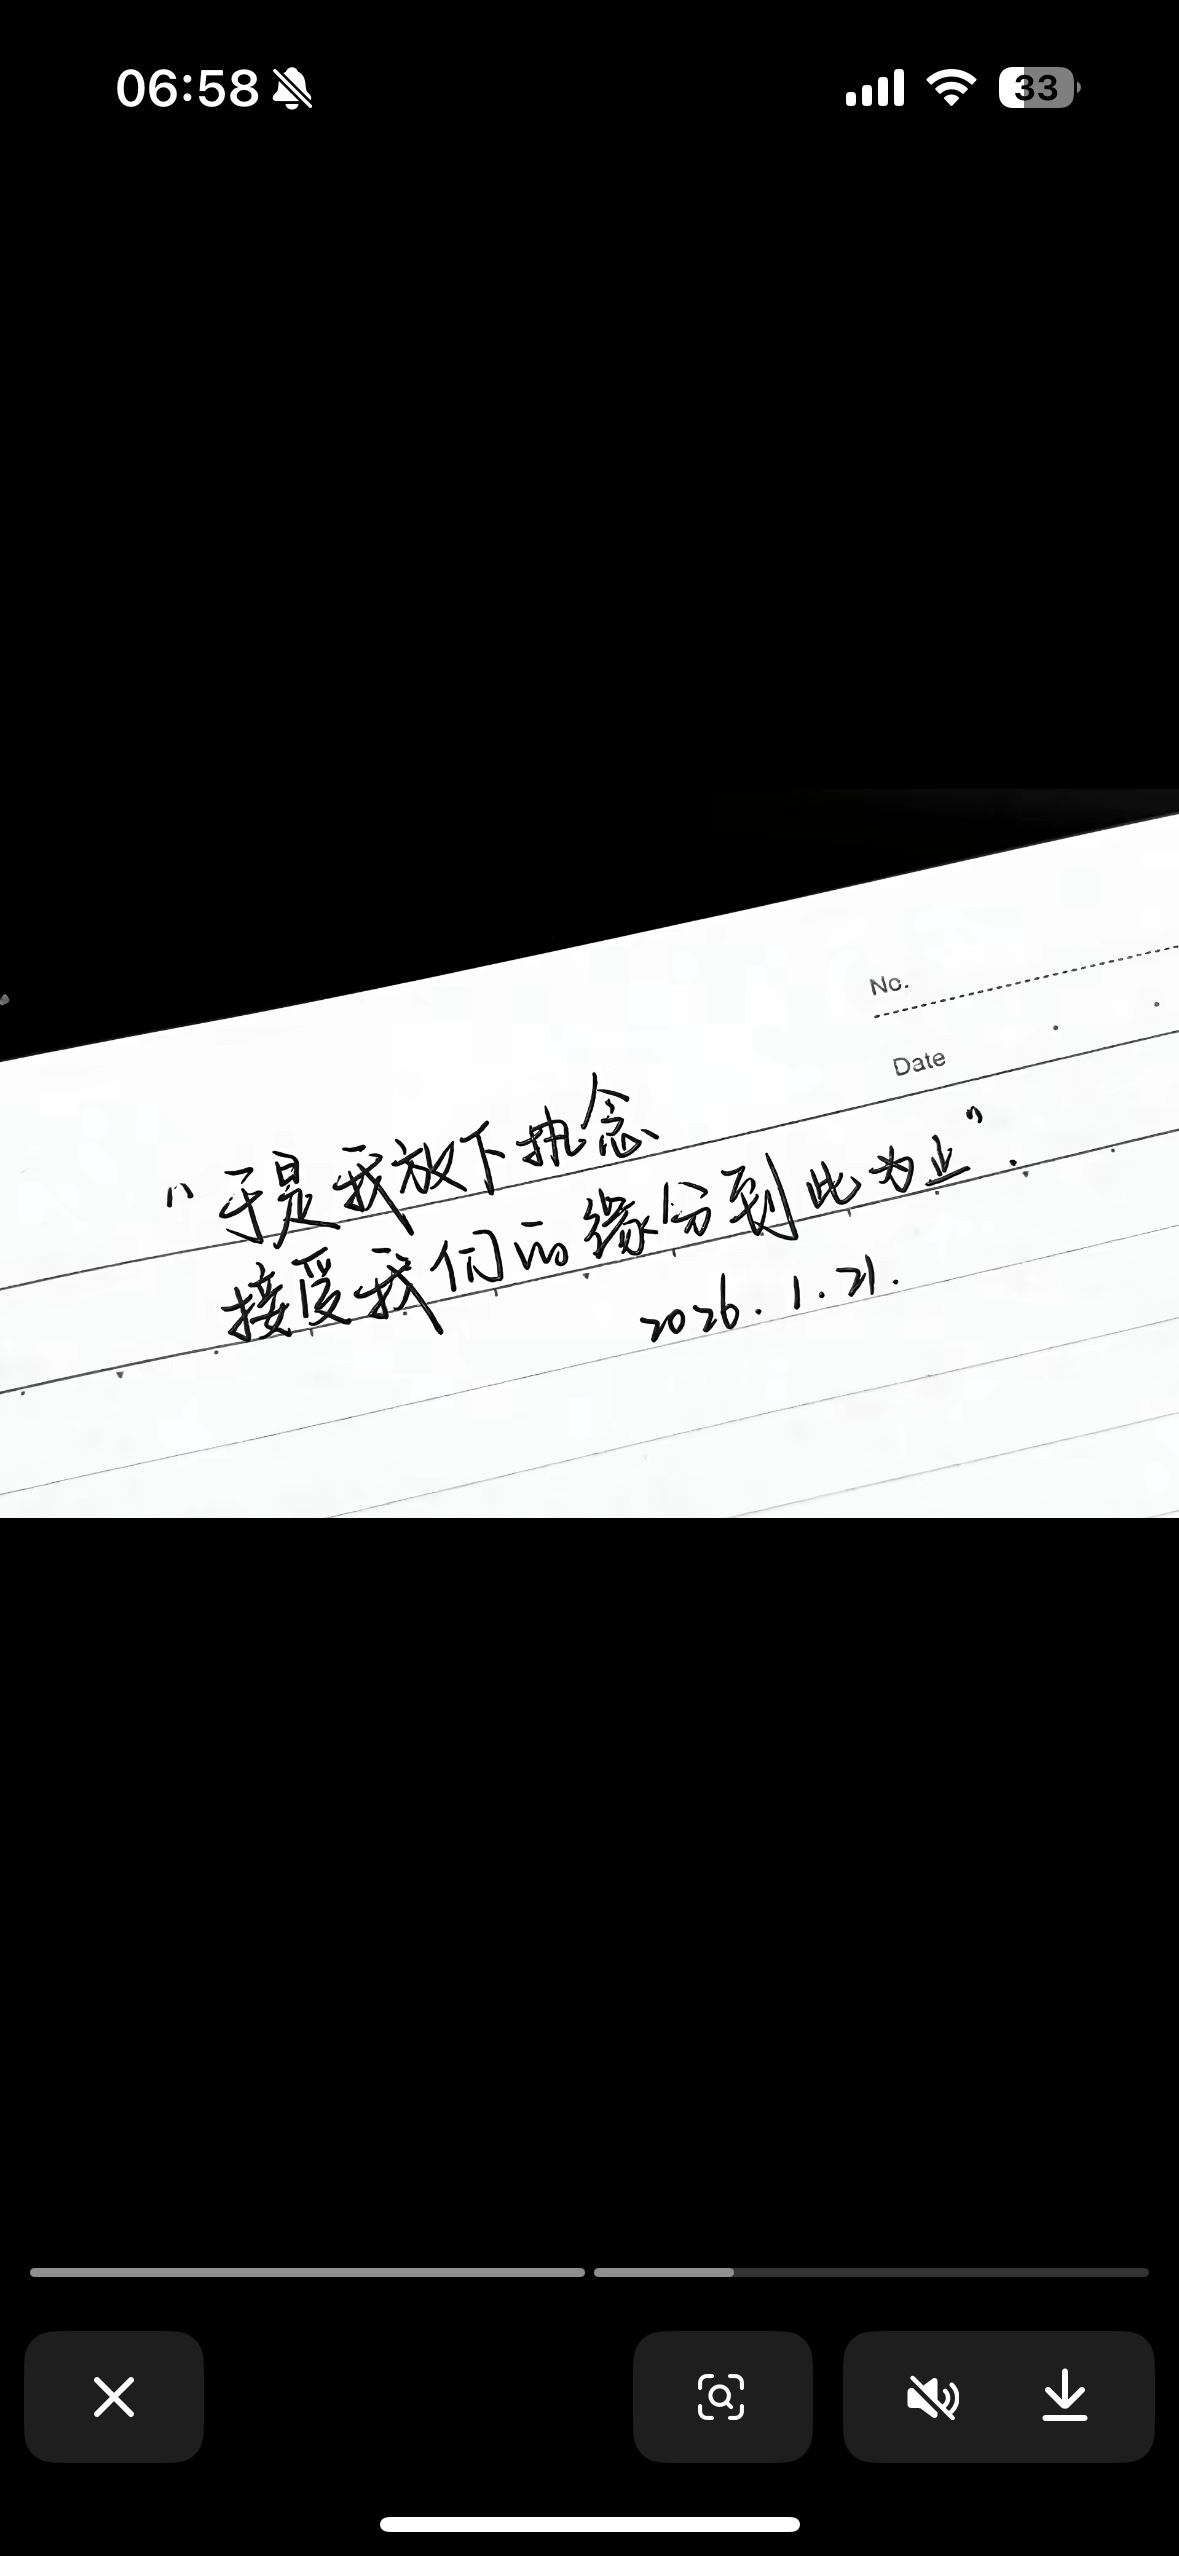 06:58
33
No.
Date
“于是我放下执念
接受我们的缘分到此为止”.
2026.1.21.